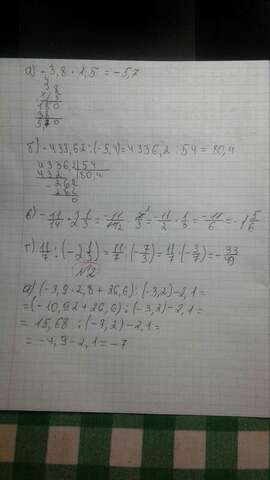 а) -3,8 · 1,5 = -5,7
3 8
× 1 5
1 9 0
3 8
5,7 0
б) -433,62 : (-5,4) = 4336,2 : 54 = 80,4
4336,2 | 54
432 | 80,4
- 2 6 2
2 6 2
0
в) -11/14 · 2 1/3 = -11/14 2 · 7 1/3 = -11/2 · 1/3 = -11/6 = -1 5/6
г) 11/7 : (-2 1/3) = 11/7 : (-7/3) = 11/7 · (-3/7) = -33/49
№2
а) (-3,9 · 2,8 + 26,6) : (-3,2) - 2,1 =
= (-10,92 + 26,6) : (-3,2) - 2,1 =
= 15,68 : (-3,2) - 2,1 =
= -4,9 - 2,1 = -7